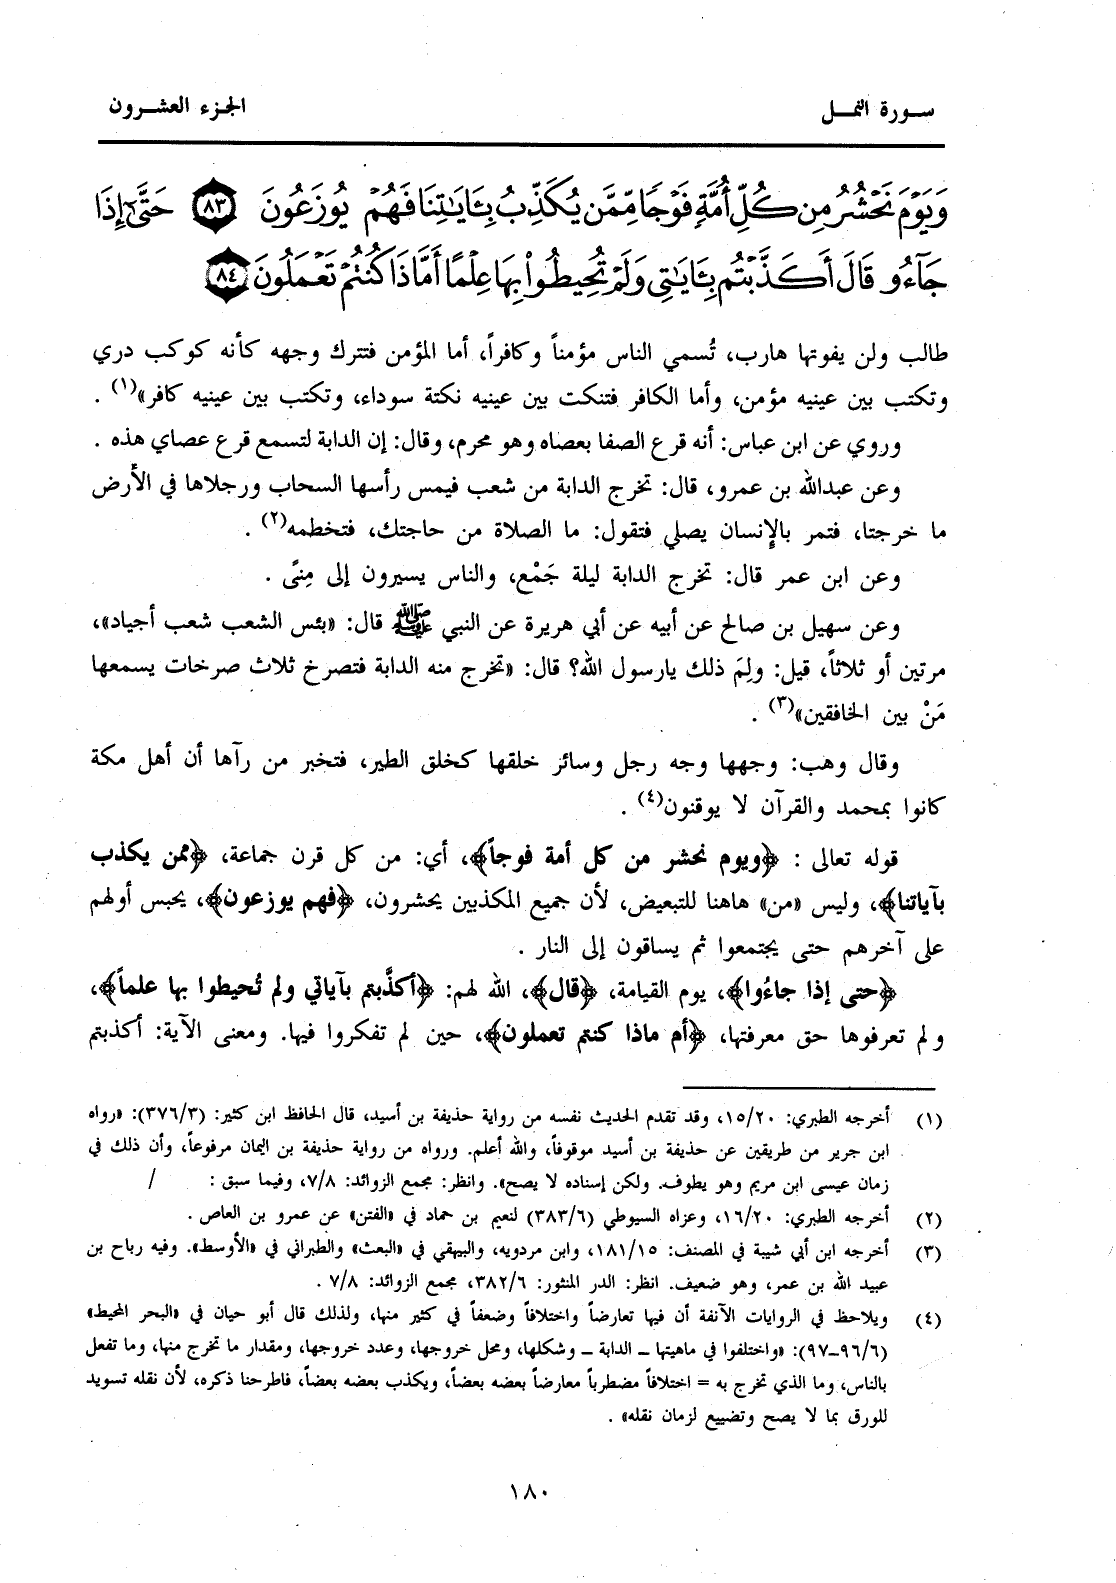 سورة النمل
الجزء العشرون
وَيَوْمَ نَحْشُرُ مِن كُلِّ أُمَّةٍ فَوْجًا مِّمَّن يُكَذِّبُ بِـَٔايَـٰتِنَا فَهُمْ يُوزَعُونَ ﴿٨٣﴾ حَتَّىٰٓ إِذَا
جَآءُو قَالَ أَكَذَّبْتُم بِـَٔايَـٰتِى وَلَمْ تُحِيطُوا۟ بِهَا عِلْمًا أَمَّاذَا كُنتُمْ تَعْمَلُونَ ﴿٨٤﴾
طالب ولن يفوتها هارب، تُسمي الناس مؤمناً وكافراً، أما المؤمن فتترك وجهه كأنه كوكب دري
وتكتب بين عينيه مؤمن، وأما الكافر فتنكت بين عينيه نكتة سوداء، وتكتب بين عينيه كافر»(١) .
وروي عن ابن عباس: أنه قرع الصفا بعصاه وهو محرم، وقال: إن الدابة لتسمع قرع عصاي هذه .
وعن عبدالله بن عمرو، قال: تخرج الدابة من شعب فيمس رأسها السحاب ورجلاها في الأرض
ما خرجتا، فتمر بالإنسان يصلي فتقول: ما الصلاة من حاجتك، فتخطمه(٢) .
وعن ابن عمر قال: تخرج الدابة ليلة جَمْع، والناس يسيرون إلى مِنىً .
وعن سهيل بن صالح عن أبيه عن أبي هريرة عن النبي ﷺ قال: «بئس الشعب شعب أجياد»،
مرتين أو ثلاثاً، قيل: ولِمَ ذلك يارسول الله؟ قال: «تخرج منه الدابة فتصرخ ثلاث صرخات يسمعها
مَنْ بين الخافقين»(٣) .
وقال وهب: وجهها وجه رجل وسائر خلقها كخلق الطير، فتخبر من رآها أن أهل مكة
كانوا بمحمد والقرآن لا يوقنون(٤) .
قوله تعالى : ﴿ويوم نحشر من كل أمة فوجاً﴾، أي: من كل قرن جماعة، ﴿ممن يكذب
بآياتنا﴾، وليس «من» هاهنا للتبعيض، لأن جميع المكذبين يحشرون، ﴿فهم يوزعون﴾، يحبس أولهم
على آخرهم حتى يجتمعوا ثم يساقون إلى النار .
﴿حتى إذا جاءُوا﴾، يوم القيامة، ﴿قال﴾، الله لهم: ﴿أكذَّبتم بآياتي ولم تُحيطوا بها علماً﴾،
ولم تعرفوها حق معرفتها، ﴿أم ماذا كنتم تعملون﴾، حين لم تفكروا فيها. ومعنى الآية: أكذبتم
(١) أخرجه الطبري: ١٥/٢٠، وقد تقدم الحديث نفسه من رواية حذيفة بن أسيد، قال الحافظ ابن كثير: (٣٧٦/٣): «رواه
ابن جرير من طريقين عن حذيفة بن أسيد موقوفاً، والله أعلم. ورواه من رواية حذيفة بن اليمان مرفوعاً، وأن ذلك في
زمان عيسى ابن مريم وهو يطوف. ولكن إسناده لا يصح». وانظر: مجمع الزوائد: ٧/٨، وفيما سبق : /
(٢) أخرجه الطبري: ١٦/٢٠، وعزاه السيوطي (٣٨٣/٦) لنعيم بن حماد في «الفتن» عن عمرو بن العاص .
(٣) أخرجه ابن أبي شيبة في المصنف: ١٨١/١٥، وابن مردويه، والبيهقي في «البعث» والطبراني في «الأوسط». وفيه رباح بن
عبيد الله بن عمر، وهو ضعيف. انظر: الدر المنثور: ٣٨٢/٦، مجمع الزوائد: ٧/٨ .
(٤) ويلاحظ في الروايات الآنفة أن فيها تعارضاً واختلافاً وضعفاً في كثير منها، ولذلك قال أبو حيان في «البحر المحيط»
(٩٦/٦-٩٧): «واختلفوا في ماهيتها – الدابة – وشكلها، ومحل خروجها، وعدد خروجها، ومقدار ما تخرج منها، وما تفعل
بالناس، وما الذي تخرج به = اختلافاً مضطرباً معارضاً بعضه بعضاً، ويكذب بعضه بعضاً، فاطرحنا ذكره، لأن نقله تسويد
للورق بما لا يصح وتضييع لزمان نقله» .
١٨٠